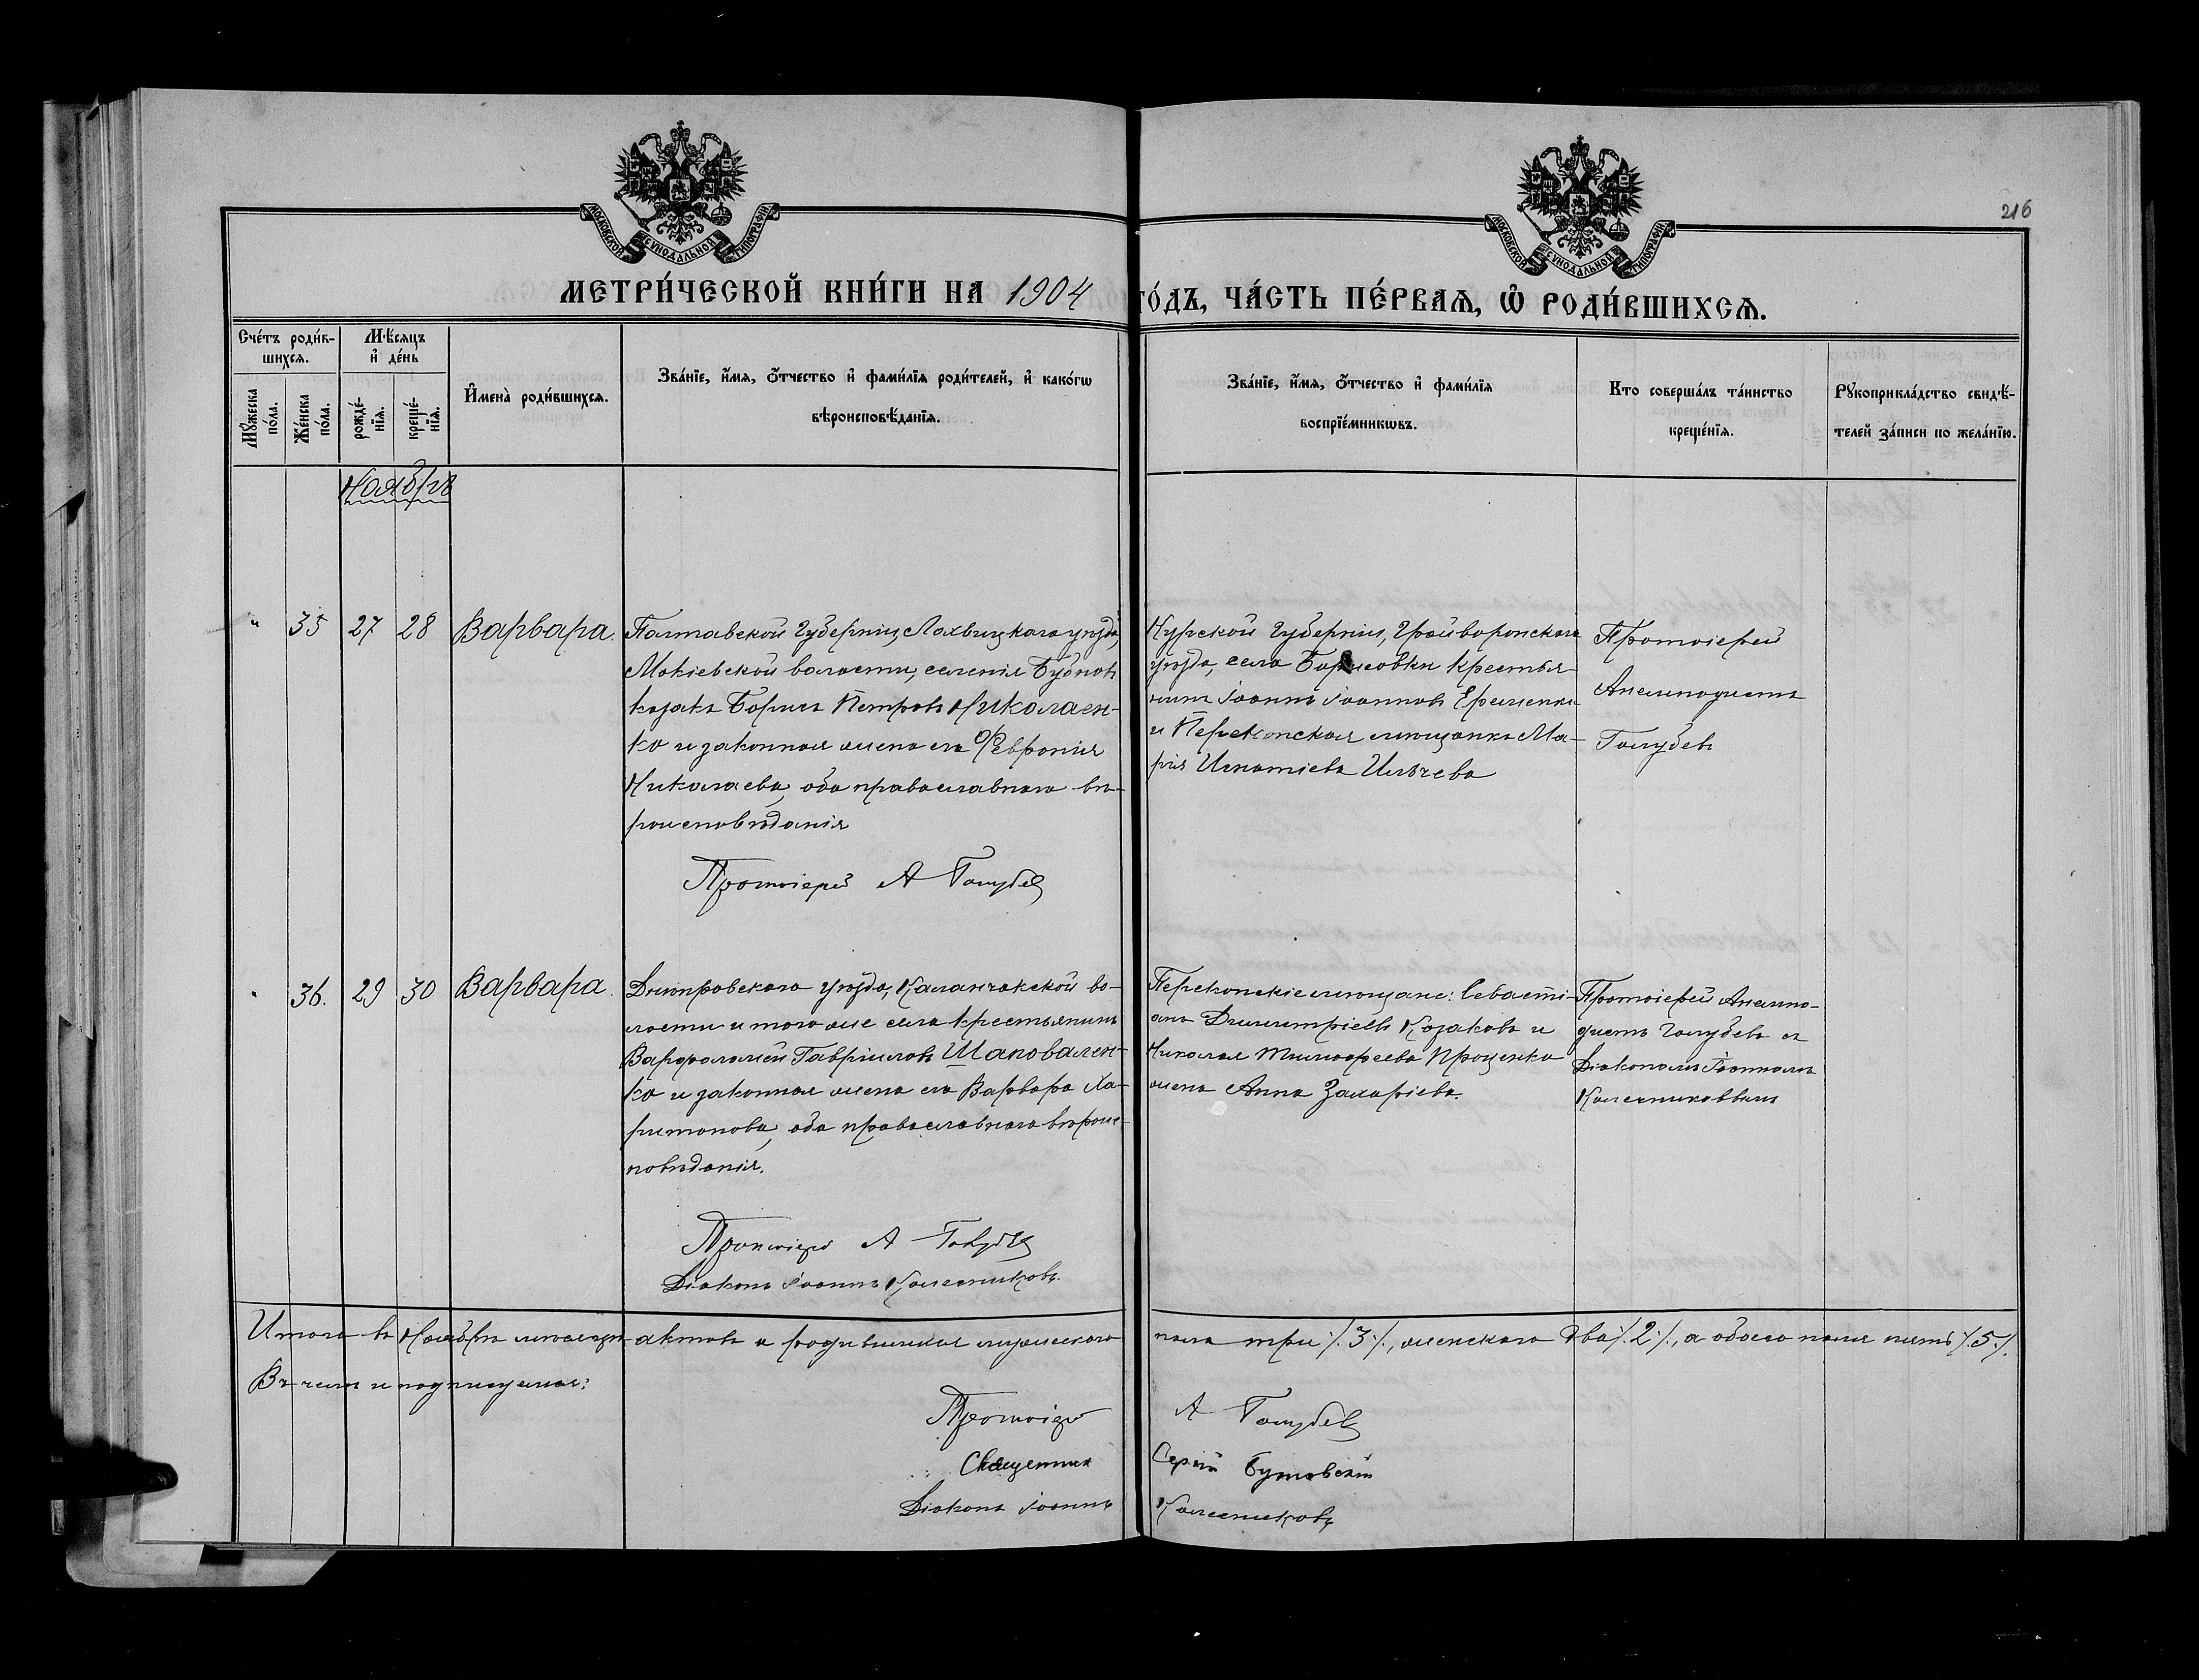 216
МОСКОВСКОЙ СѴНОДАЛЬНОЙ ТИПОГРАФІИ
МОСКОВСКОЙ СѴНОДАЛЬНОЙ ТИПОГРАФІИ
МЕТРИ́ЧЕСКОЙ КНИ́ГИ НА 1904 ГО́ДЪ, ЧА́СТЬ ПЕ́РВАѦ, Ѽ РОДИ́ВШИХСѦ.
Сче́тъ роди́в-
шихсѧ.
Мꙋ́жеска
по́ла.
Же́нска
по́ла.
Мѣ́сяцъ
и҆ де́нь
рожде́-
нїѧ.
креще́-
нїѧ.
И҆мена̀ роди́вшихсѧ.
Зва́нїе, и҆́мѧ, ѻ҆́тчество и҆ фами́лїѧ роди́телей, и҆ како́гѡ
вѣроисповѣ́данїѧ.
Зва́нїе, и҆́мѧ, ѻ҆́тчество и҆ фами́лїѧ
воспрїе́мникѡвъ.
Кто соверша́лъ та́инство
креще́нїѧ.
Рꙋкоприкла́дство свидѣ́-
телей за́писи по жела́нїю.
Ноябрь
" 35 27 28 Варвара.
Полтавской Губерніи, Лохвицкаго уѣзда,
Мокіевской волости, селенія Бубновъ
козакъ Борисъ Петровъ Николаен-
ко и законная жена его Ѳевронія
Николаева, оба православнаго вѣ-
роисповѣданія
Протоіерей А Голубев
Курской Губерніи, Грайворонскаго
уѣзда, села Борисовки крестья-
нинъ Іоаннъ Іоанновъ Еременко
и Перекопская мѣщанка Ма-
рія Игнатіева Ильчева
Протоіерей
Анемподистъ
Голубевъ
" 36. 29 30 Варвара.
Днѣпровскаго уѣзда, Каланчакской во-
лости и того же села крестьянинъ
Варфоломей Гавріиловъ Шаповален-
ко и законная жена его Варвара Ха-
ритонова, оба православнаго вѣроис-
повѣданія.
Протоіерей А Голубев
Діаконъ Іоаннъ Колесниковъ.
Перекопскіе мѣщане: Севасті-
анъ Димитріевъ Козаковъ и
Николая Тимофеева Проценко
жена Анна Захаріева.
Протоіерей Анемпо-
дистъ Голубевъ съ
Діакономъ Іоанномъ
Колесниковымъ
Итого въ Ноябрѣ мѣсяцѣ актовъ о родившихся мужескаго пола три /.3./, женскаго два /.2./, а обоего пола пять /.5./.
Въ чемъ и подписуемся:
Протоіерей А Голубев
Священникъ Сергій Бутовскій
Діаконъ Іоаннъ Колесниковъ